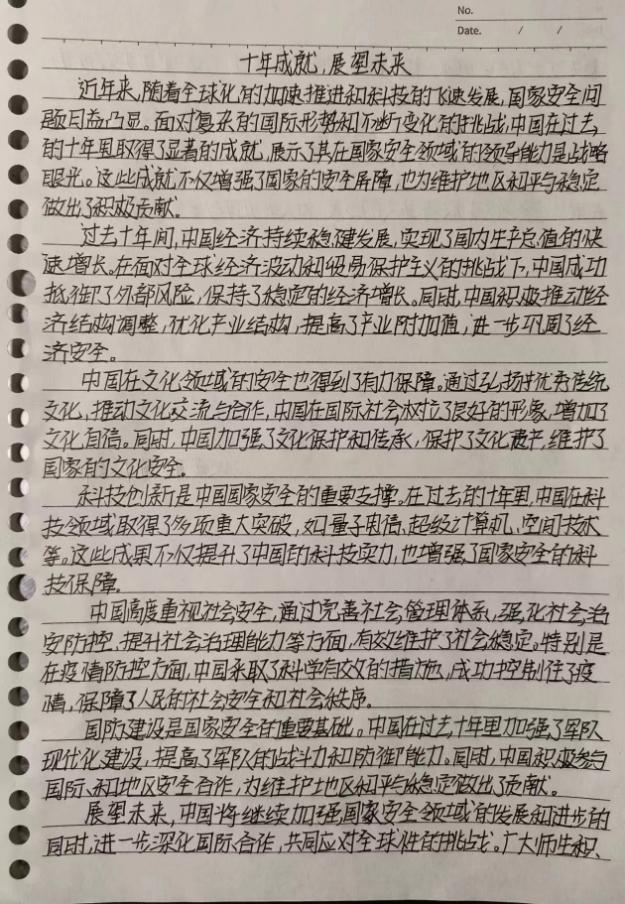 No.
Date. / /
十年成就,展望未来
近年来,随着全球化的加速推进和科技的飞速发展,国家安全问
题日益凸显。面对复杂的国际形势和不断变化的挑战,中国在过去
的十年里取得了显著的成就,展示了其在国家安全领域的领导能力是战略
眼光。这些成就不仅增强了国家的安全屏障,也为维护地区和平与稳定
做出了积极贡献.
过去十年间,中国经济持续稳健发展,实现了国内生产总值的快
速增长。在面对全球经济波动和贸易保护主义的挑战下,中国成功
抵御了外部风险,保持了稳定的经济增长。同时,中国积极推动经
济结构调整,优化产业结构,提高了产业附加值,进一步巩固了经
济安全。
中国在文化领域的安全也得到了有力保障。通过弘扬优秀传统
文化,推动文化交流与合作,中国在国际社会树立了良好的形象,增加了
文化自信。同时,中国加强了文化保护和传承,保护了文化遗产,维护了
国家的文化安全.
科技创新是中国国家安全的重要支撑。在过去的十年里,中国在科
技领域取得了多项重大突破,如量子通信、超级计算机、空间技术
等。这些成果不仅提升了中国的科技实力,也增强了国家安全的科
技保障.
中国高度重视社会安全,通过完善社会管理体系,强化社会治
安防控、提升社会治理能力等方面,有效维护了社会稳定。特别是
在疫情防控方面,中国采取了科学有效的措施,成功控制住了疫
情,保障了人民的社会安全和社会秩序.
国防建设是国家安全的重要基础。中国在过去十年里加强了军队
现代化建设,提高了军队的战斗力和防御能力。同时,中国积极参与
国际和地区安全合作,为维护地区和平与稳定做出了贡献。
展望未来,中国将继续加强国家安全领域的发展和进步的
同时,进一步深化国际合作,共同应对全球性的挑战。广大师生积、